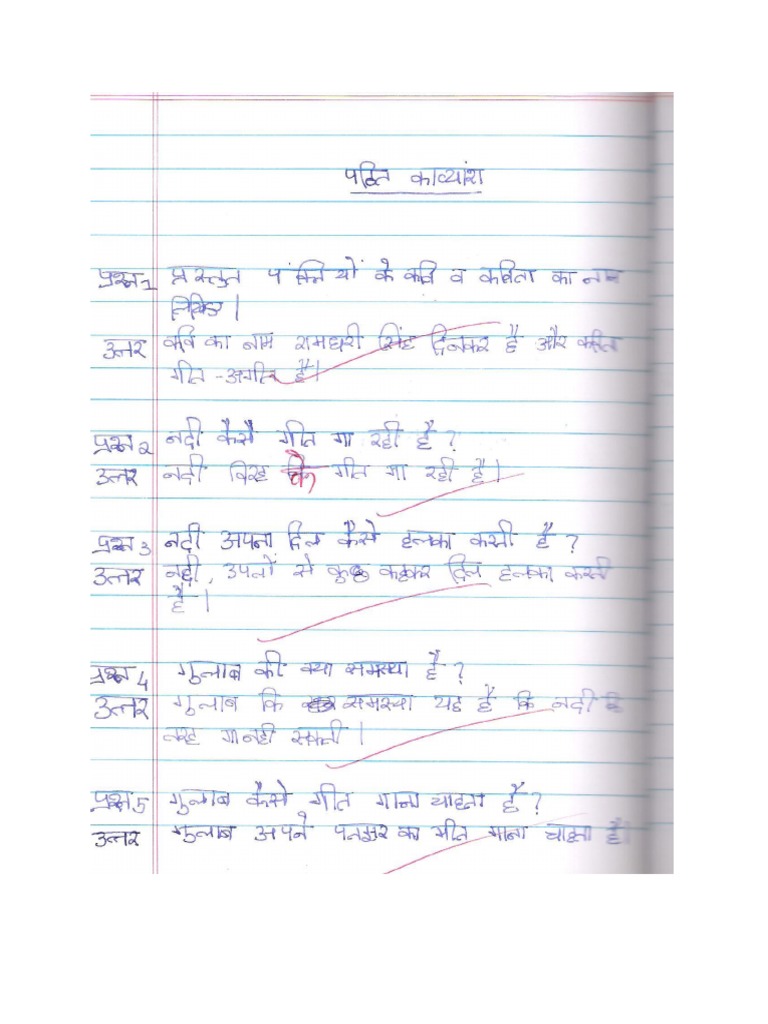 पठित काव्यांश
प्रश्न 1 प्रस्तुत पंक्तियों के कवि व कविता का नाम
लिखिए।
उत्तर कवि का नाम रामधारी सिंह दिनकर है और
गीत - अगीत है।
प्रश्न 2 नदी कैसे गीत गा रही है?
उत्तर नदी विरह के गीत गा रही है।
प्रश्न 3 नदी अपना दिल कैसे हलका करती है?
उत्तर नदी, उपलों से कुछ कहकर दिल हलका करती
है।
प्रश्न 4 गुलाब की क्या समस्या है?
उत्तर गुलाब कि समस्या यह है कि नदी कि
तरह गा नही सकती।
प्रश्न 5 गुलाब कैसे गीत गाना चाहता है?
उत्तर गुलाब अपने पतझर का गीत गाना चाहता है।